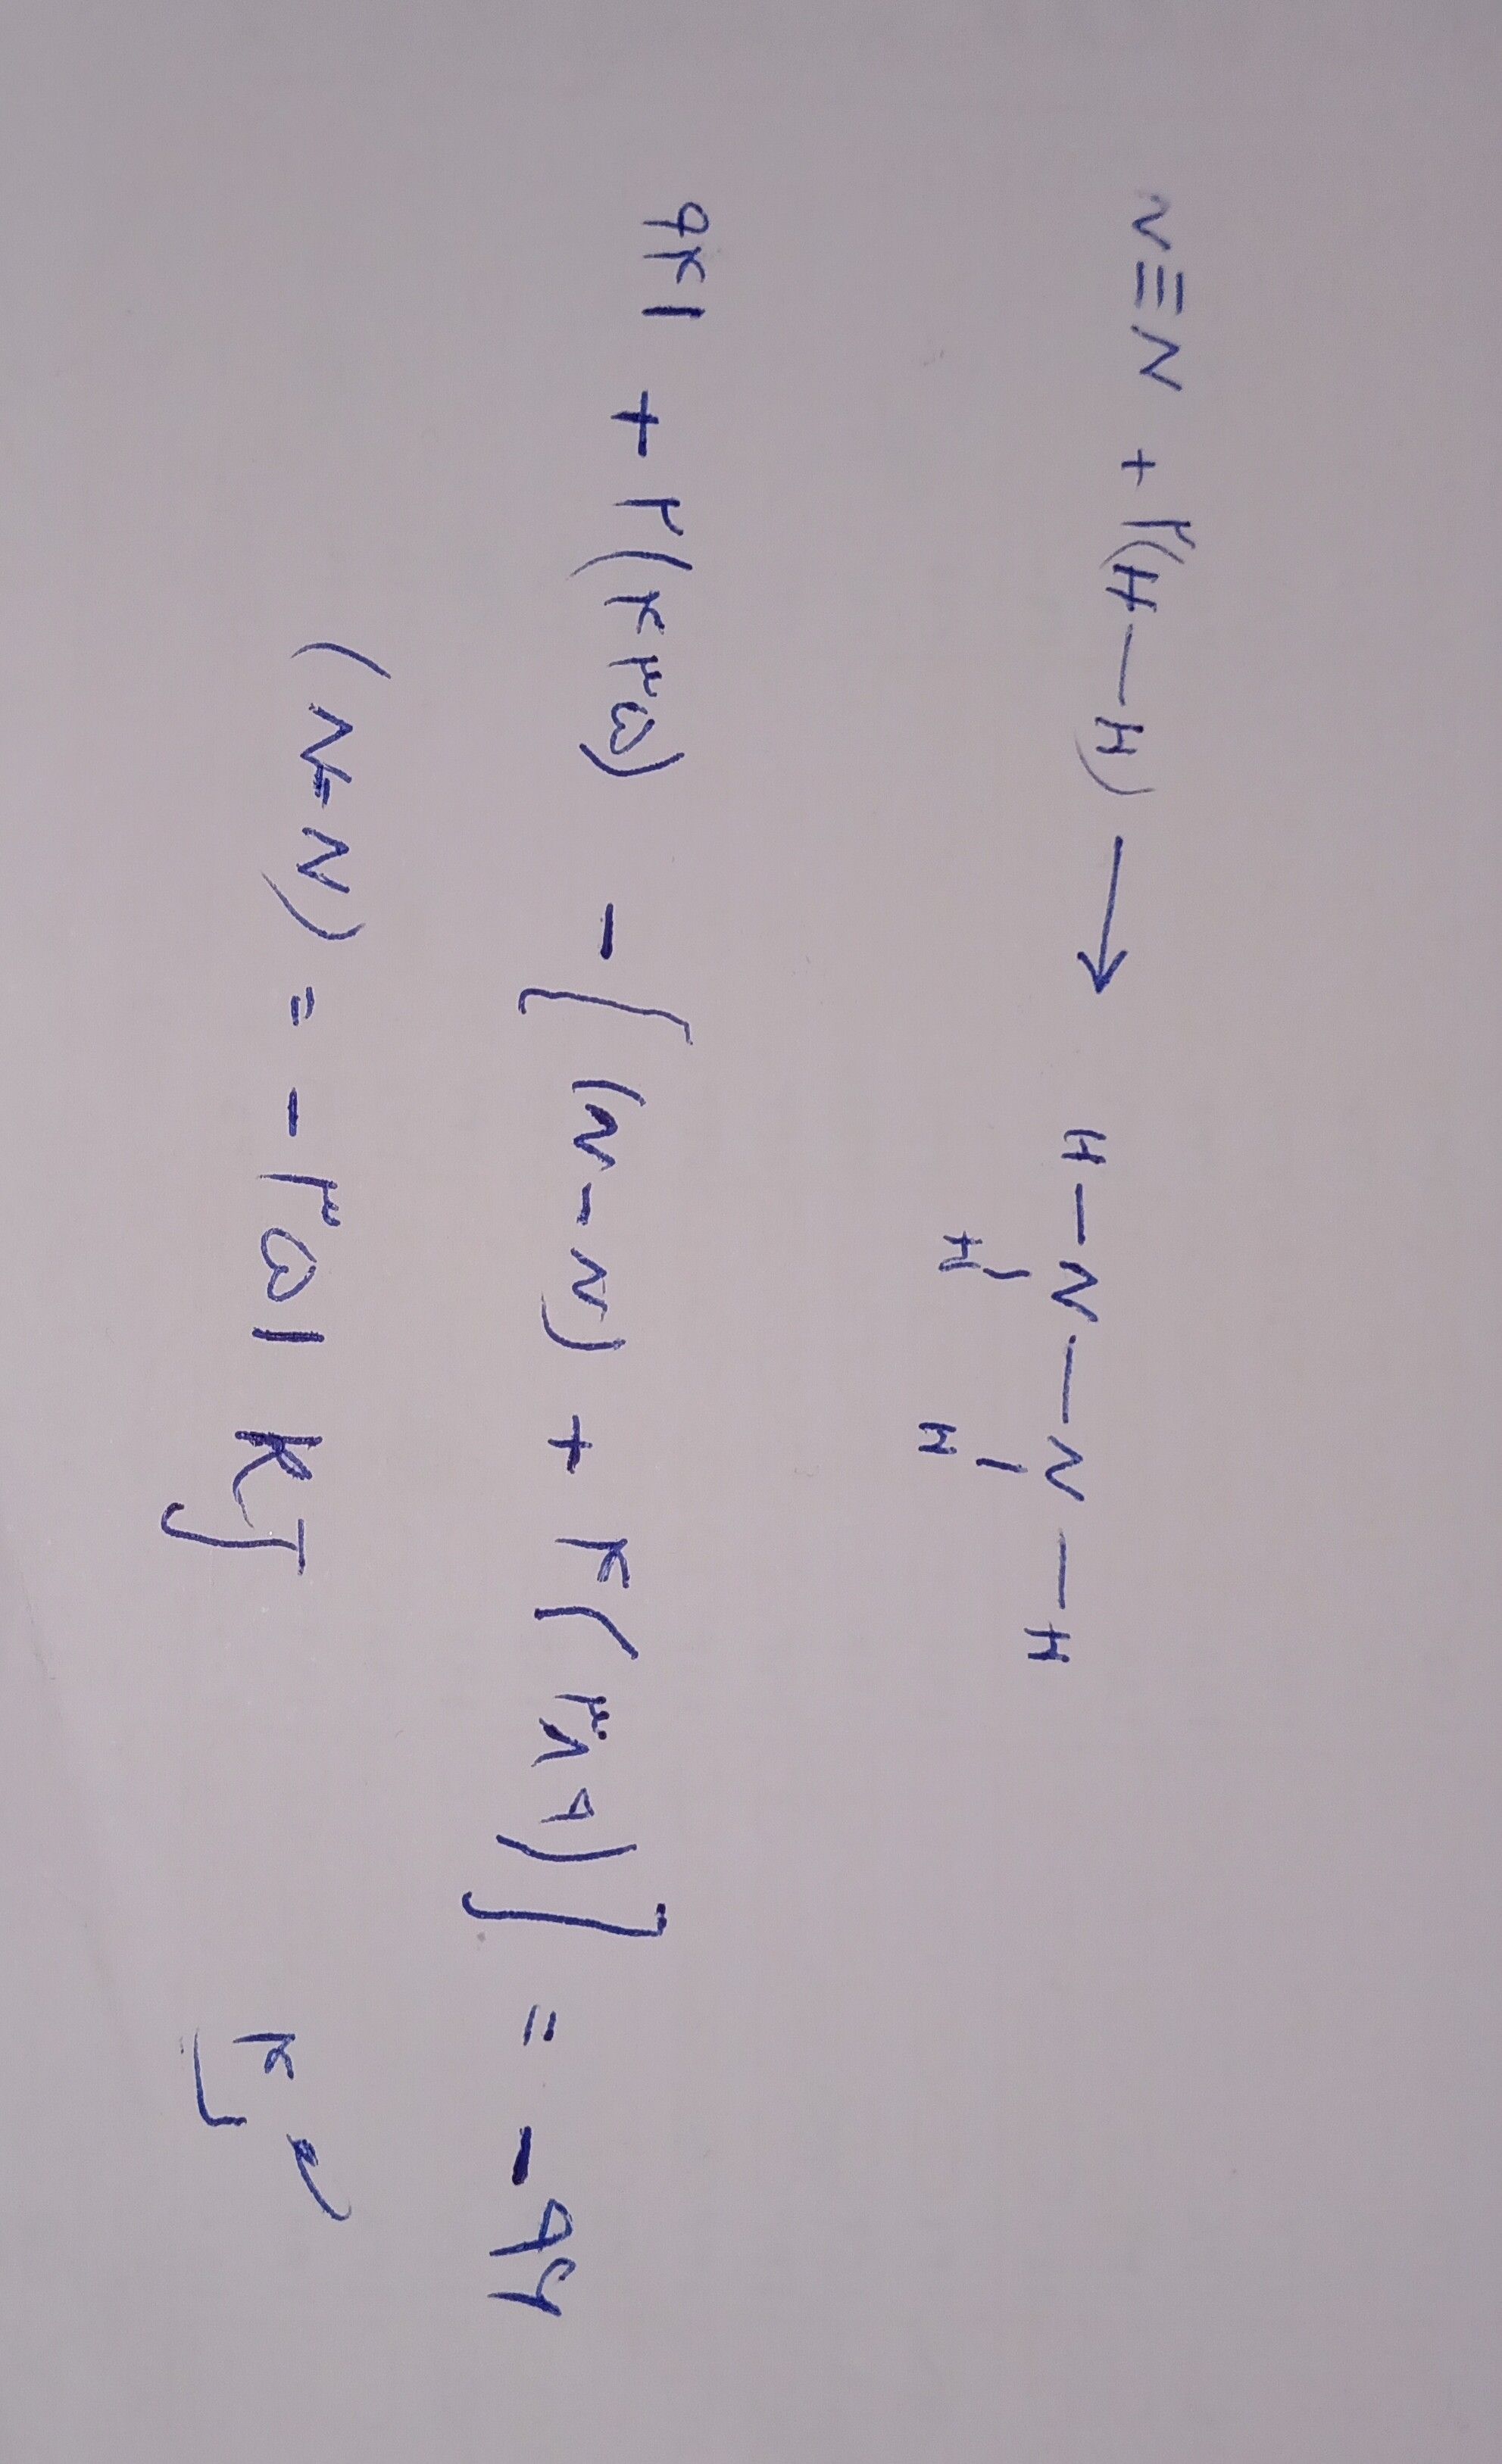 N≡N + ۲(H—H) → H—N—N—H
H H
۹۴۱ + ۲(۴۳۵) - [(N-N) + ۴(۳۸۹)] = -۹۶
(N-N) = -۳۵۱ KJ